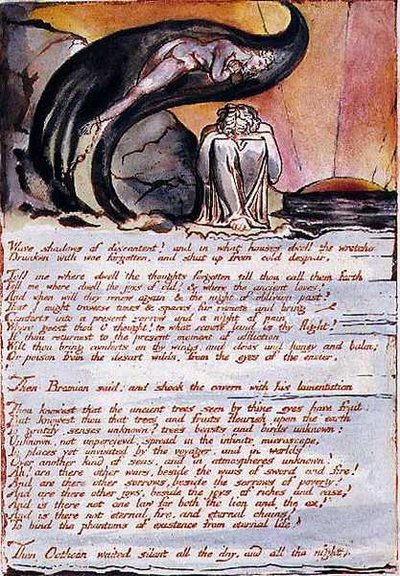 Wave shadows of discontent? and in what houses dwell the wretched
Drunken with woe forgotten, and shut up from cold despair.
Tell me where dwell the thoughts forgotten till thou call them forth
Tell me where dwell the joys of old! & where the ancient loves?
And when will they renew again & the night of oblivion past?
That I might traverse times & spaces far remote and bring
Comforts into a present sorrow and a night of pain
Where goest thou O thought! to what remote land is thy flight?
If thou returnest to the present moment of affliction
Wilt thou bring comforts on thy wings and dews and honey and balm;
Or poison from the desart wilds, from the eyes of the envier.
Then Bromion said: and shook the cavern with his lamentation
Thou knowest that the ancient trees seen by thine eyes have fruit;
But knowest thou that trees and fruits flourish upon the earth
To gratify senses unknown? trees beasts and birds unknown:
Unknown, not unpercievd, spread in the infinite microscope,
In places yet unvisited by the voyager, and in worlds
Over another kind of seas, and in atmospheres unknown:
Ah! are there other wars, beside the wars of sword and fire!
And are there other sorrows, beside the sorrows of poverty!
And are there other joys, beside the joys of riches and ease?
And is there not one law for both the lion and the ox?
And is there not eternal fire, and eternal chains?
To bind the phantoms of existence from eternal life?
Then Oothoon waited silent all the day, and all the night,